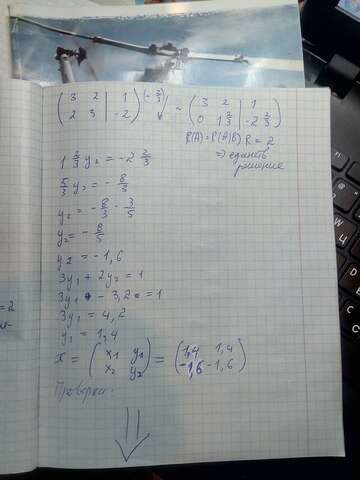 ( 3 2 | 1 ; 2 3 | -2 ) (-2/3) ↓ ~ ( 3 2 | 1 ; 0 1 2/3 | -2 2/3 )
R(A) = R(A|B) R = 2
⇒ единств
решение
1 2/3 y₂ = -2 2/3
5/3 y₂ = - 8/3
y₂ = - 8/3 · 3/5
y₂ = - 8/5
y₂ = -1,6
3y₁ + 2y₂ = 1
3y₁ - 3,2 = 1
3y₁ = 4,2
y₁ = 1,4
X = ( x₁ y₁ ; x₂ y₂ ) = ( 1,4 1,4 ; -1,6 -1,6 )
Проверка:
=2